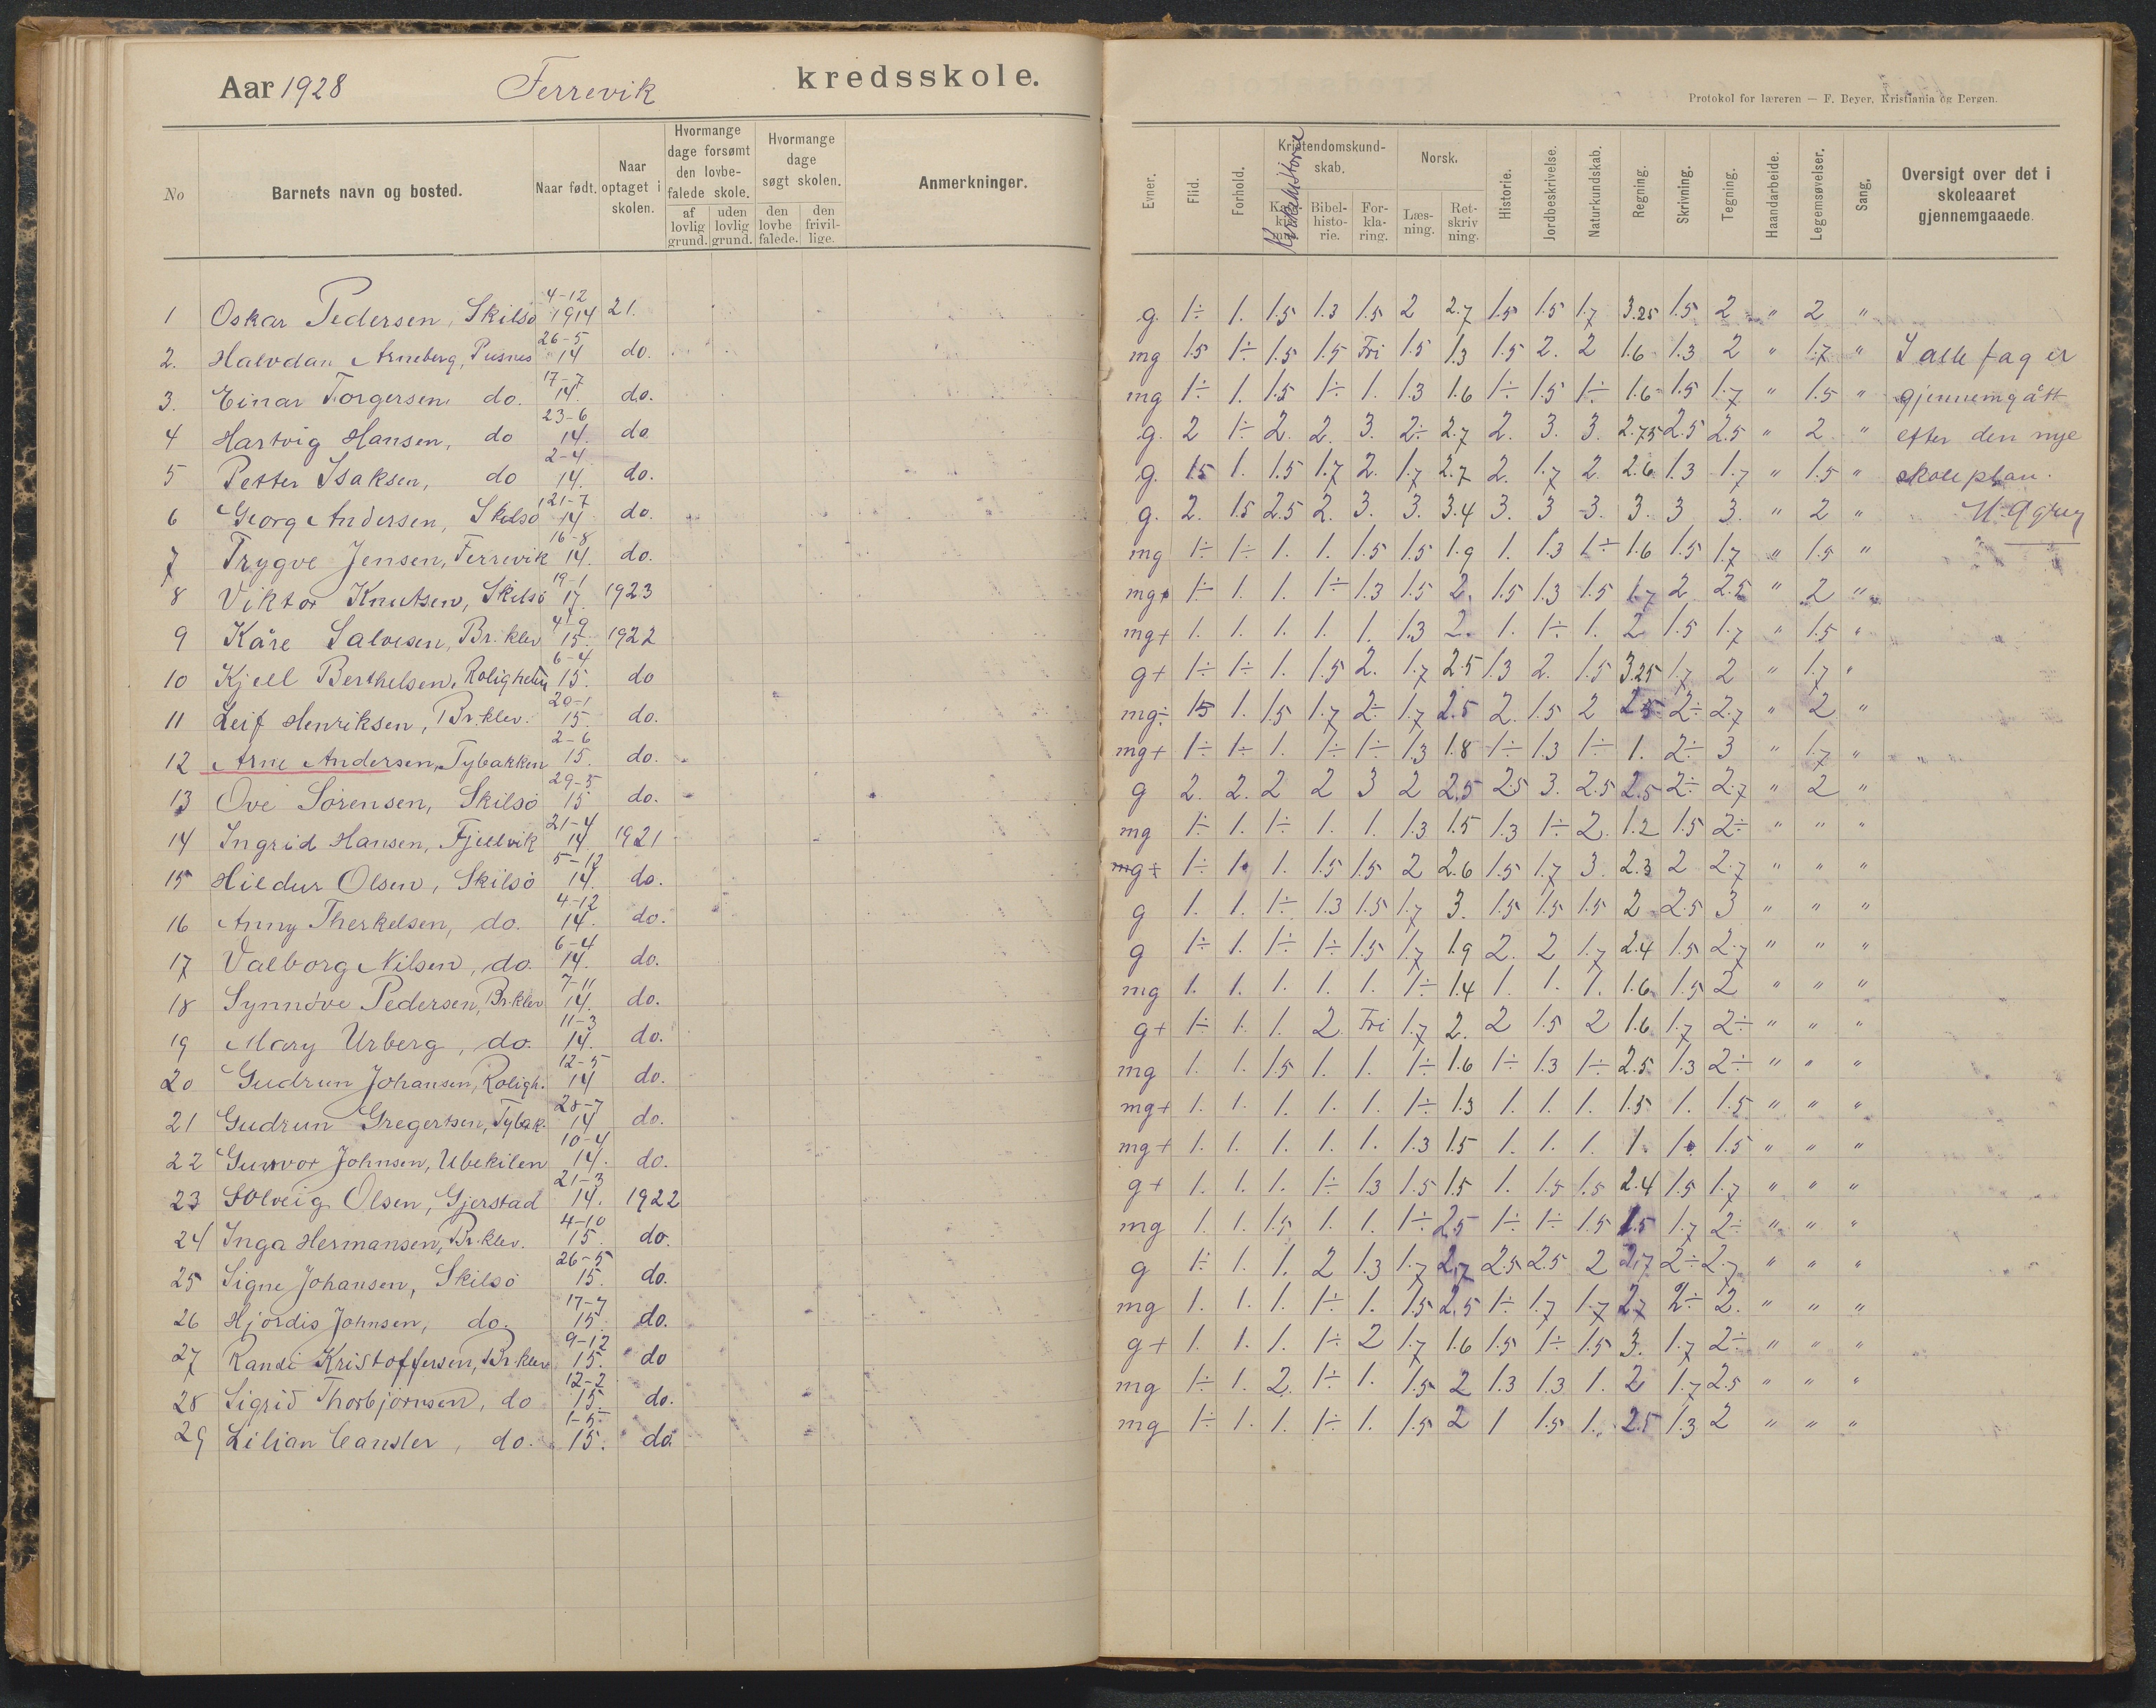 Aar 1928 Ferrevik kredsskole.
Protokol for læreren — F. Beyer, Kristiania og Bergen.
No Barnets navn og bosted. Naar født. Naar optaget i skolen. Hvormange dage forsømt den lovbefalede skole. af lovlig grund. uden lovlig grund. Hvormange dage søgt skolen. den lovbefalede. den frivillige. Anmerkninger.
Evner. Flid. Forhold. Kristendomskundskab. Kirkehistorie Bibelhistorie. Forklaring. Norsk. Læsning. Retskrivning. Historie. Jordbeskrivelse. Naturkundskab. Regning. Skrivning. Tegning. Haandarbeide. Legemsøvelser. Sang. Oversigt over det i skoleaaret gjennemgaaede.
1 Oskar Pedersen, Skilsø 4-12 1914 21. g. 1÷ 1. 1.5 1.3 1.5 2 2.7 1.5 1.5 1.7 3.25 1.5 2 " 2 "
2. Halvdan Arneberg, Pusnes 26-5 14 do. mg 1.5 1÷ 1.5 1.5 Fri 1.5 1.3 1.5 2. 2 1.6 1.3 2 " 1.7 " I alle fag er
3. Einar Torgersen do. 17-7 14. do. mg 1÷ 1. 1.5 1÷ 1. 1.3 1.6 1÷ 1.5 1÷ 1.6 1.5 1.7 " 1.5 " gjennemgått
4 Hartvig Hansen, do 23-6 14. do g. 2 1÷ 2. 2. 3. 2÷ 2.7 2. 3. 3. 2.75 2.5 2.5 " 2 " efter den nye
5 Petter Isaksen, do 2-4 14. do. g. 1.5 1. 1.5 1.7 2. 1.7 2.7 2. 1.7 2. 2.6 1.3 1.7 " 1.5 " skoleplan.
6 Georg Andersen, Skilsø 21-7 14 do. g. 2. 1.5 2.5 2. 3. 3. 3.4 3. 3 3. 3. 3 3. " 2 "
7 Trygve Jensen, Ferrevik 16-8 14. do. mg 1÷ 1÷ 1. 1. 1.5 1.5 1.9 1. 1.3 1÷ 1.6 1.5 1.7 " 1.5 "
8 Viktor Knutsen, Skilsø 19-1 17. 1923 mg+ 1÷ 1. 1. 1÷ 1.3 1.5 2. 1.5 1.3 1.5 1.7 2 2.5 " 2 "
9 Kåre Salvesen, Br.klev 4-9 15. 1922 mg+ 1. 1. 1. 1. 1. 1.3 2. 1. 1÷ 1. 2 1.5 1.7 " 1.5 "
10 Kjell Berthelsen, Roligheten 6-4 15. do g+ 1÷ 1÷ 1. 1.5 2. 1.7 2.5 1.3 2. 1.5 3.25 1.7 2 " 1.7 "
11 Leif Henriksen, Br.klev. 20-1 15. do. mg÷ 1.5 1. 1.5 1.7 2÷ 1.7 2.5 2. 1.5 2 2.5 2÷ 2.7 " 2 "
12 Arne Andersen, Tybakken 2-6 15. do. mg+ 1÷ 1÷ 1. 1÷ 1÷ 1.3 1.8 1÷ 1.3 1÷ 1. 2÷ 3 " 1.7 "
13 Ove Sørensen, Skilsø 29-5 15 do. g 2. 2. 2 2 3 2 2.5 2.5 3. 2.5 2.5 2÷ 2.7 " 2 "
14 Ingrid Hansen, Fjellvik 21-4 14 1921 mg 1÷ 1. 1÷ 1. 1. 1.3 1.5 1.3 1÷ 2. 1.2 1.5 2÷ " " "
15 Hildur Olsen, Skilsø 5-12 14. do. mg± 1÷ 1. 1. 1.5 1.5 2 2.6 1.5 1.7 3. 2.3 2 2.7 " " "
16 Anny Therkelsen, do. 4-12 14. do. g 1. 1. 1÷ 1.3 1.5 1.7 3. 1.5 1.5 1.5 2 2.5 3 " " "
17 Valborg Nilsen, do. 6-4 14. do. g 1÷ 1. 1÷ 1÷ 1.5 1.7 1.9 2. 2 1.7 2.4 1.5 2.7 " " "
18 Synnøve Pedersen, Br.klev 7-11 14. do. mg 1. 1. 1. 1. 1. 1÷ 1.4 1. 1. 1. 1.6 1.5 2 " " "
19 Mary Urberg, do. 11-3 14. do. g+ 1÷ 1. 1. 2. Fri 1.7 2. 2 1.5 2 1.6 1.7 2÷ " " "
20 Gudrun Johansen, Roligh. 12-5 14 do. mg 1. 1. 1.5 1. 1. 1÷ 1.6 1÷ 1.3 1÷ 2.5 1.3 2÷ " " "
21 Gudrun Gregertsen, Tybak. 28-7 14 do. mg+ 1. 1. 1. 1. 1. 1÷ 1.3 1. 1. 1. 1.5 1. 1.5 " " "
22 Gunvor Johnsen, Ubekilen 10-4 14. do. mg+ 1. 1. 1. 1. 1. 1.3 1.5 1. 1. 1. 1. 1. 1.5 " " "
23 Solveig Olsen, Gjerstad 21-3 14. 1922 g+ 1. 1. 1. 1÷ 1.3 1.5 1.5 1. 1.5 1.5 2.4 1.5 1.7 " " "
24 Inga Hermansen, Br.klev. 4-10 15. do. mg 1. 1. 1.5 1. 1. 1÷ 2.5 1÷ 1÷ 1.5 1.5 1.7 2÷ " " "
25 Signe Johansen, Skilsø 26-5 15. do. g 1÷ 1. 1. 2 1.3 1.7 2.7 2.5 2.5 2 2.7 2÷ 2.7 " " "
26 Hjørdis Johnsen, do. 17-7 15. do. mg 1. 1. 1. 1÷ 1. 1.5 2.5 1÷ 1.7 1.7 2.7 2÷ 2. " " "
27 Randi Kristoffersen, Br.klev 9-12 15. do g+ 1. 1. 1. 1÷ 2 1.7 1.6 1.5 1÷ 1.5 3. 1.7 2÷ " " "
28 Sigrid Thorbjørnsen, do 12-2 15. do. mg 1÷ 1. 2. 1÷ 1. 1.5 2 1.3 1.3 1. 2 1.7 2.5 " " "
29 Lilian Cansler, do. 1-5- 15. do. mg 1÷ 1. 1. 1÷ 1. 1.5 2 1 1.5 1. 2.5 1.3 2 " " "